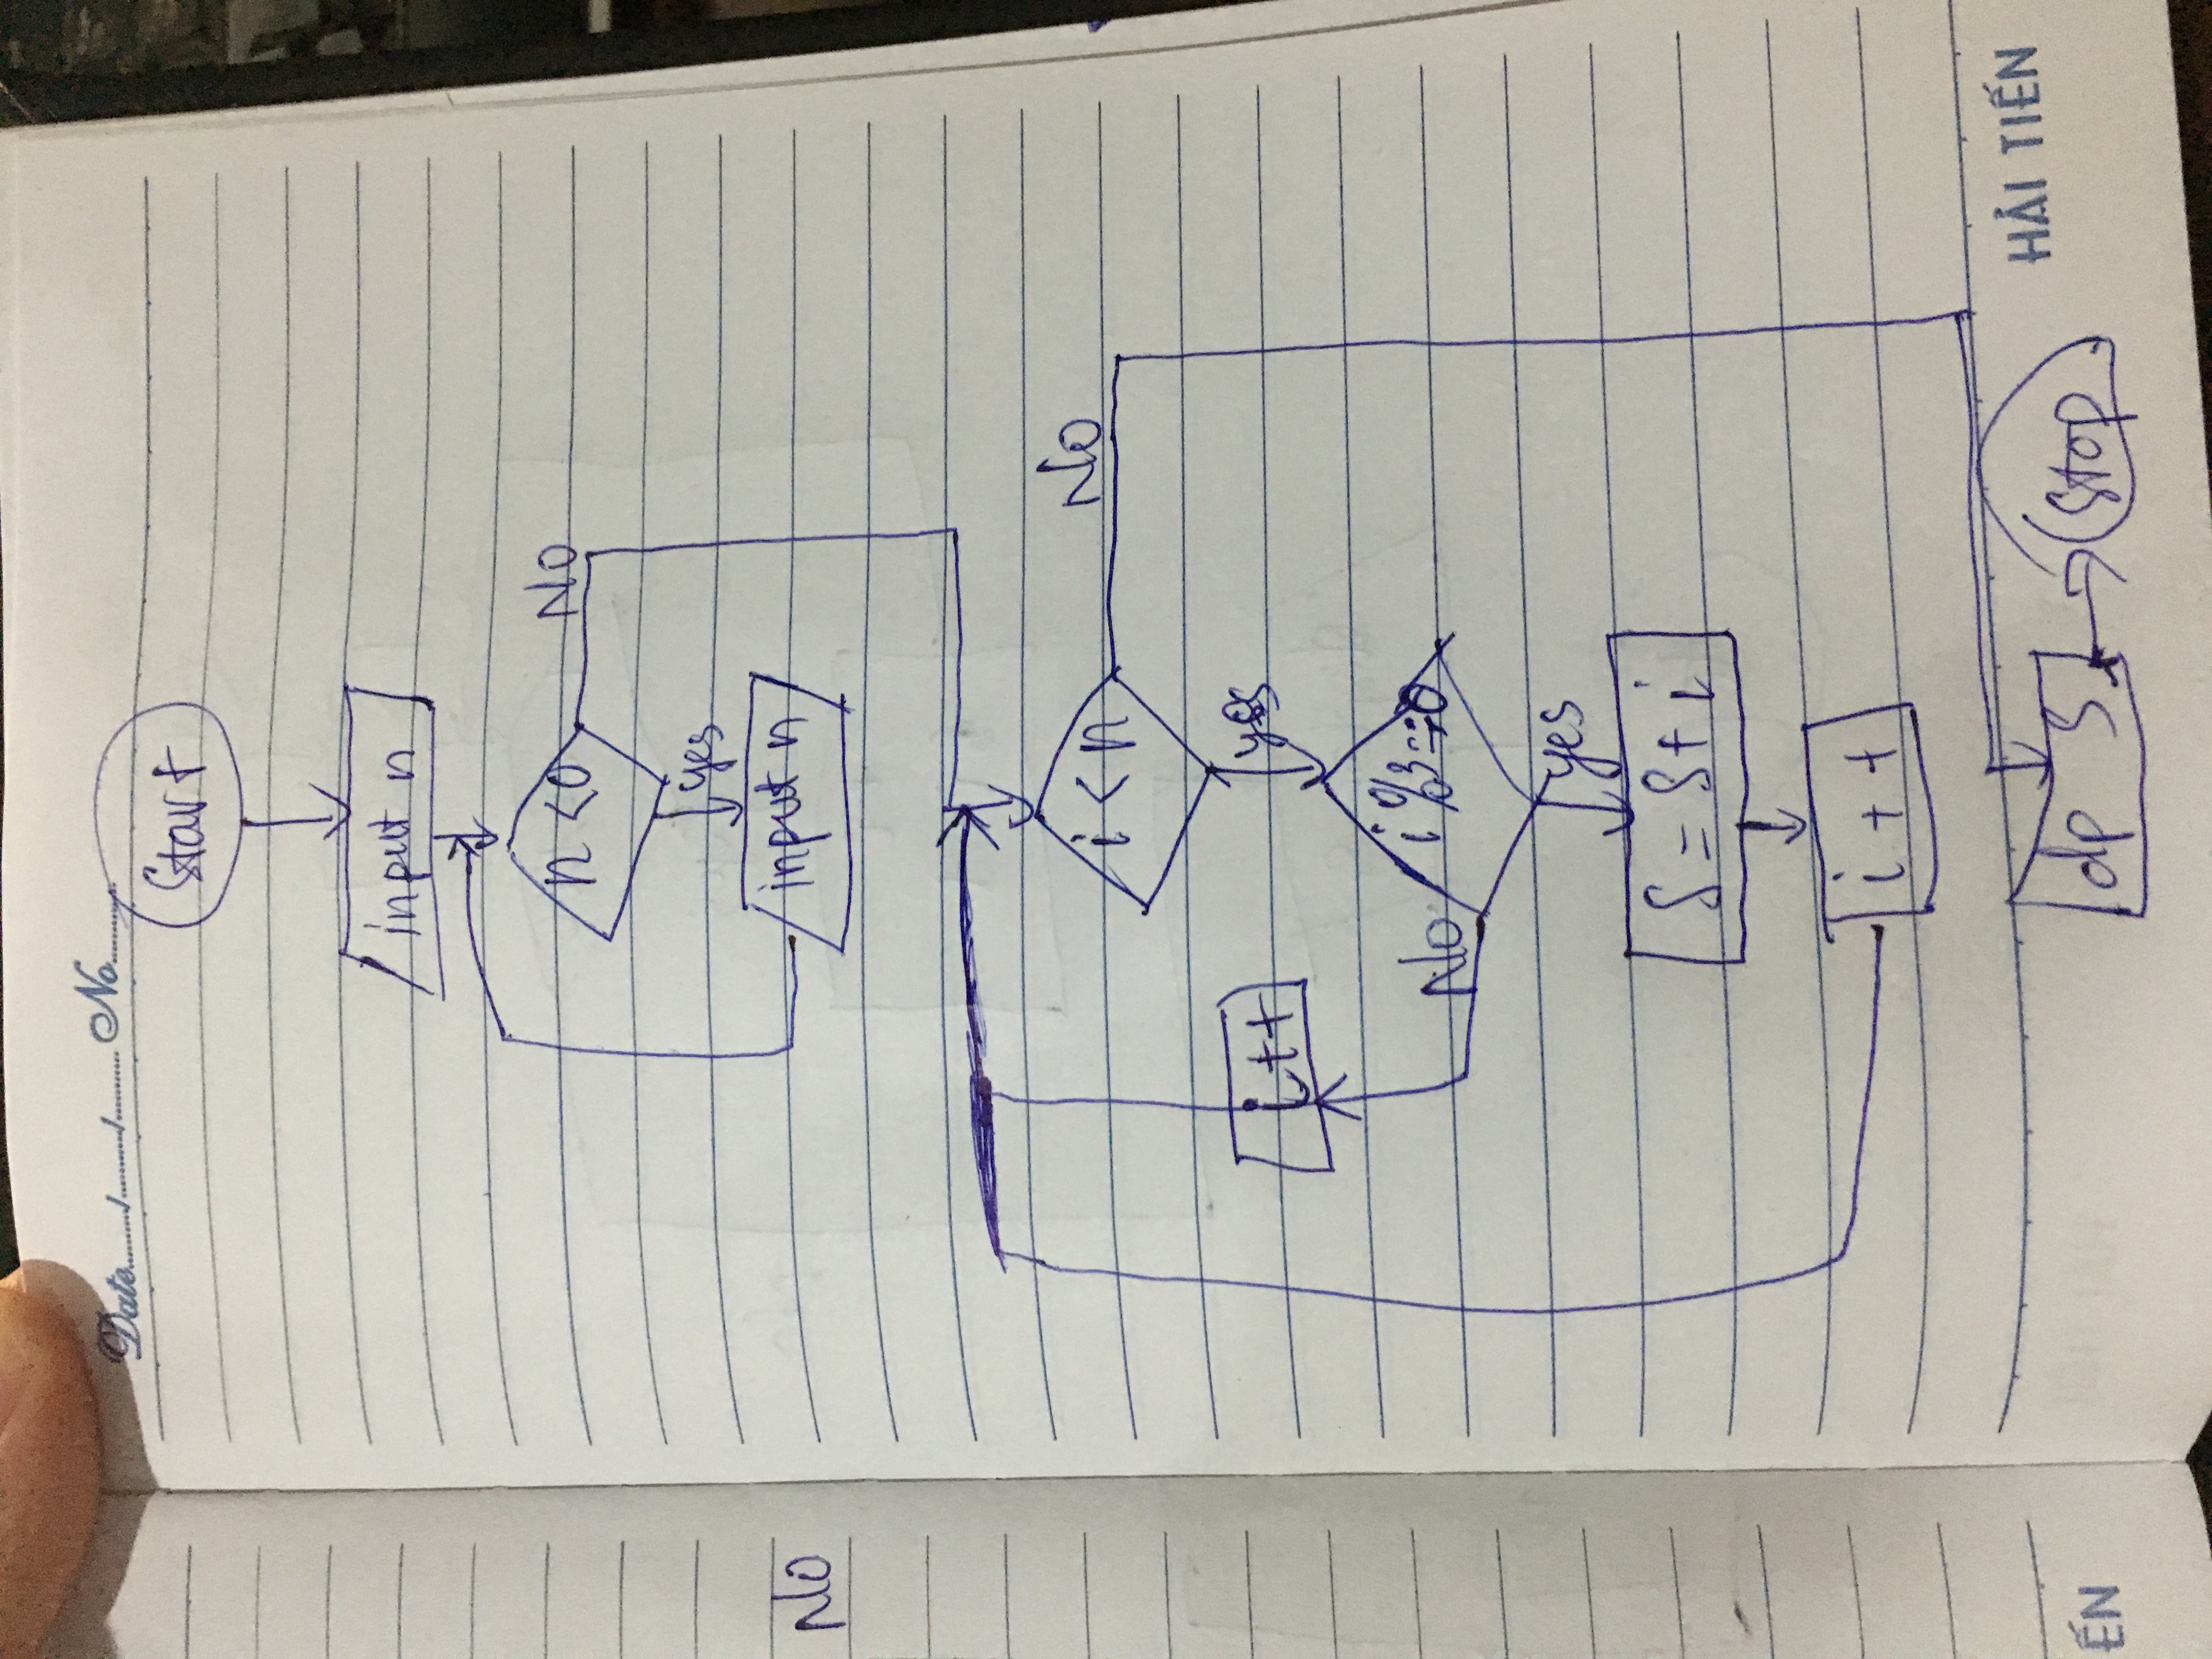 Date......../......../........ No........
Start
input n
n < 0
NO
yes
input n
NO
i < n
NO
yes
i++
i%3==0
NO
yes
S = S + i
i++
dp S
Stop
HẢI TIẾN
ẾN